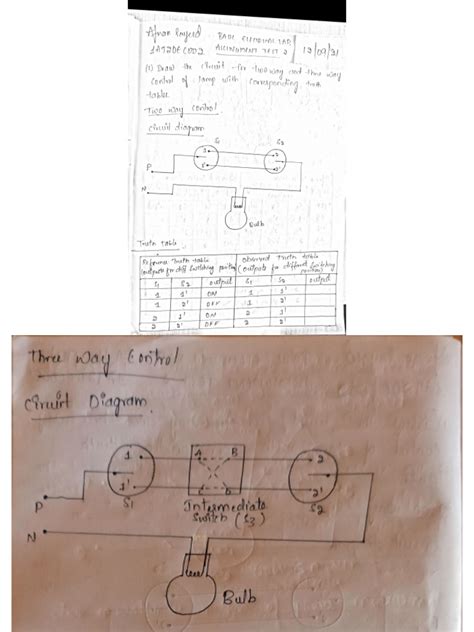 BASIC ELECTRICAL LAB
ASSIGNMENT TEST 2
13/09/21
(1) Draw the circuit for two way and three way
control of lamp with corresponding truth
table.
Two way control
circuit diagram
S1 S2
1 2
1' 2'
P
N
Bulb
Truth table
Reference Truth table observed Truth table
(outputs for diff switching position) (outputs for different switching position)
S1 S2 output S1 S2 output
1 1' ON 1
1 2' OFF 1 2'
2 ON 2
2 2' OFF 2 2'
Three Way Control
Circuit Diagram
1 A B 2
1' C D 2'
P S1 Intermediate S2
Switch (S3)
N
Bulb